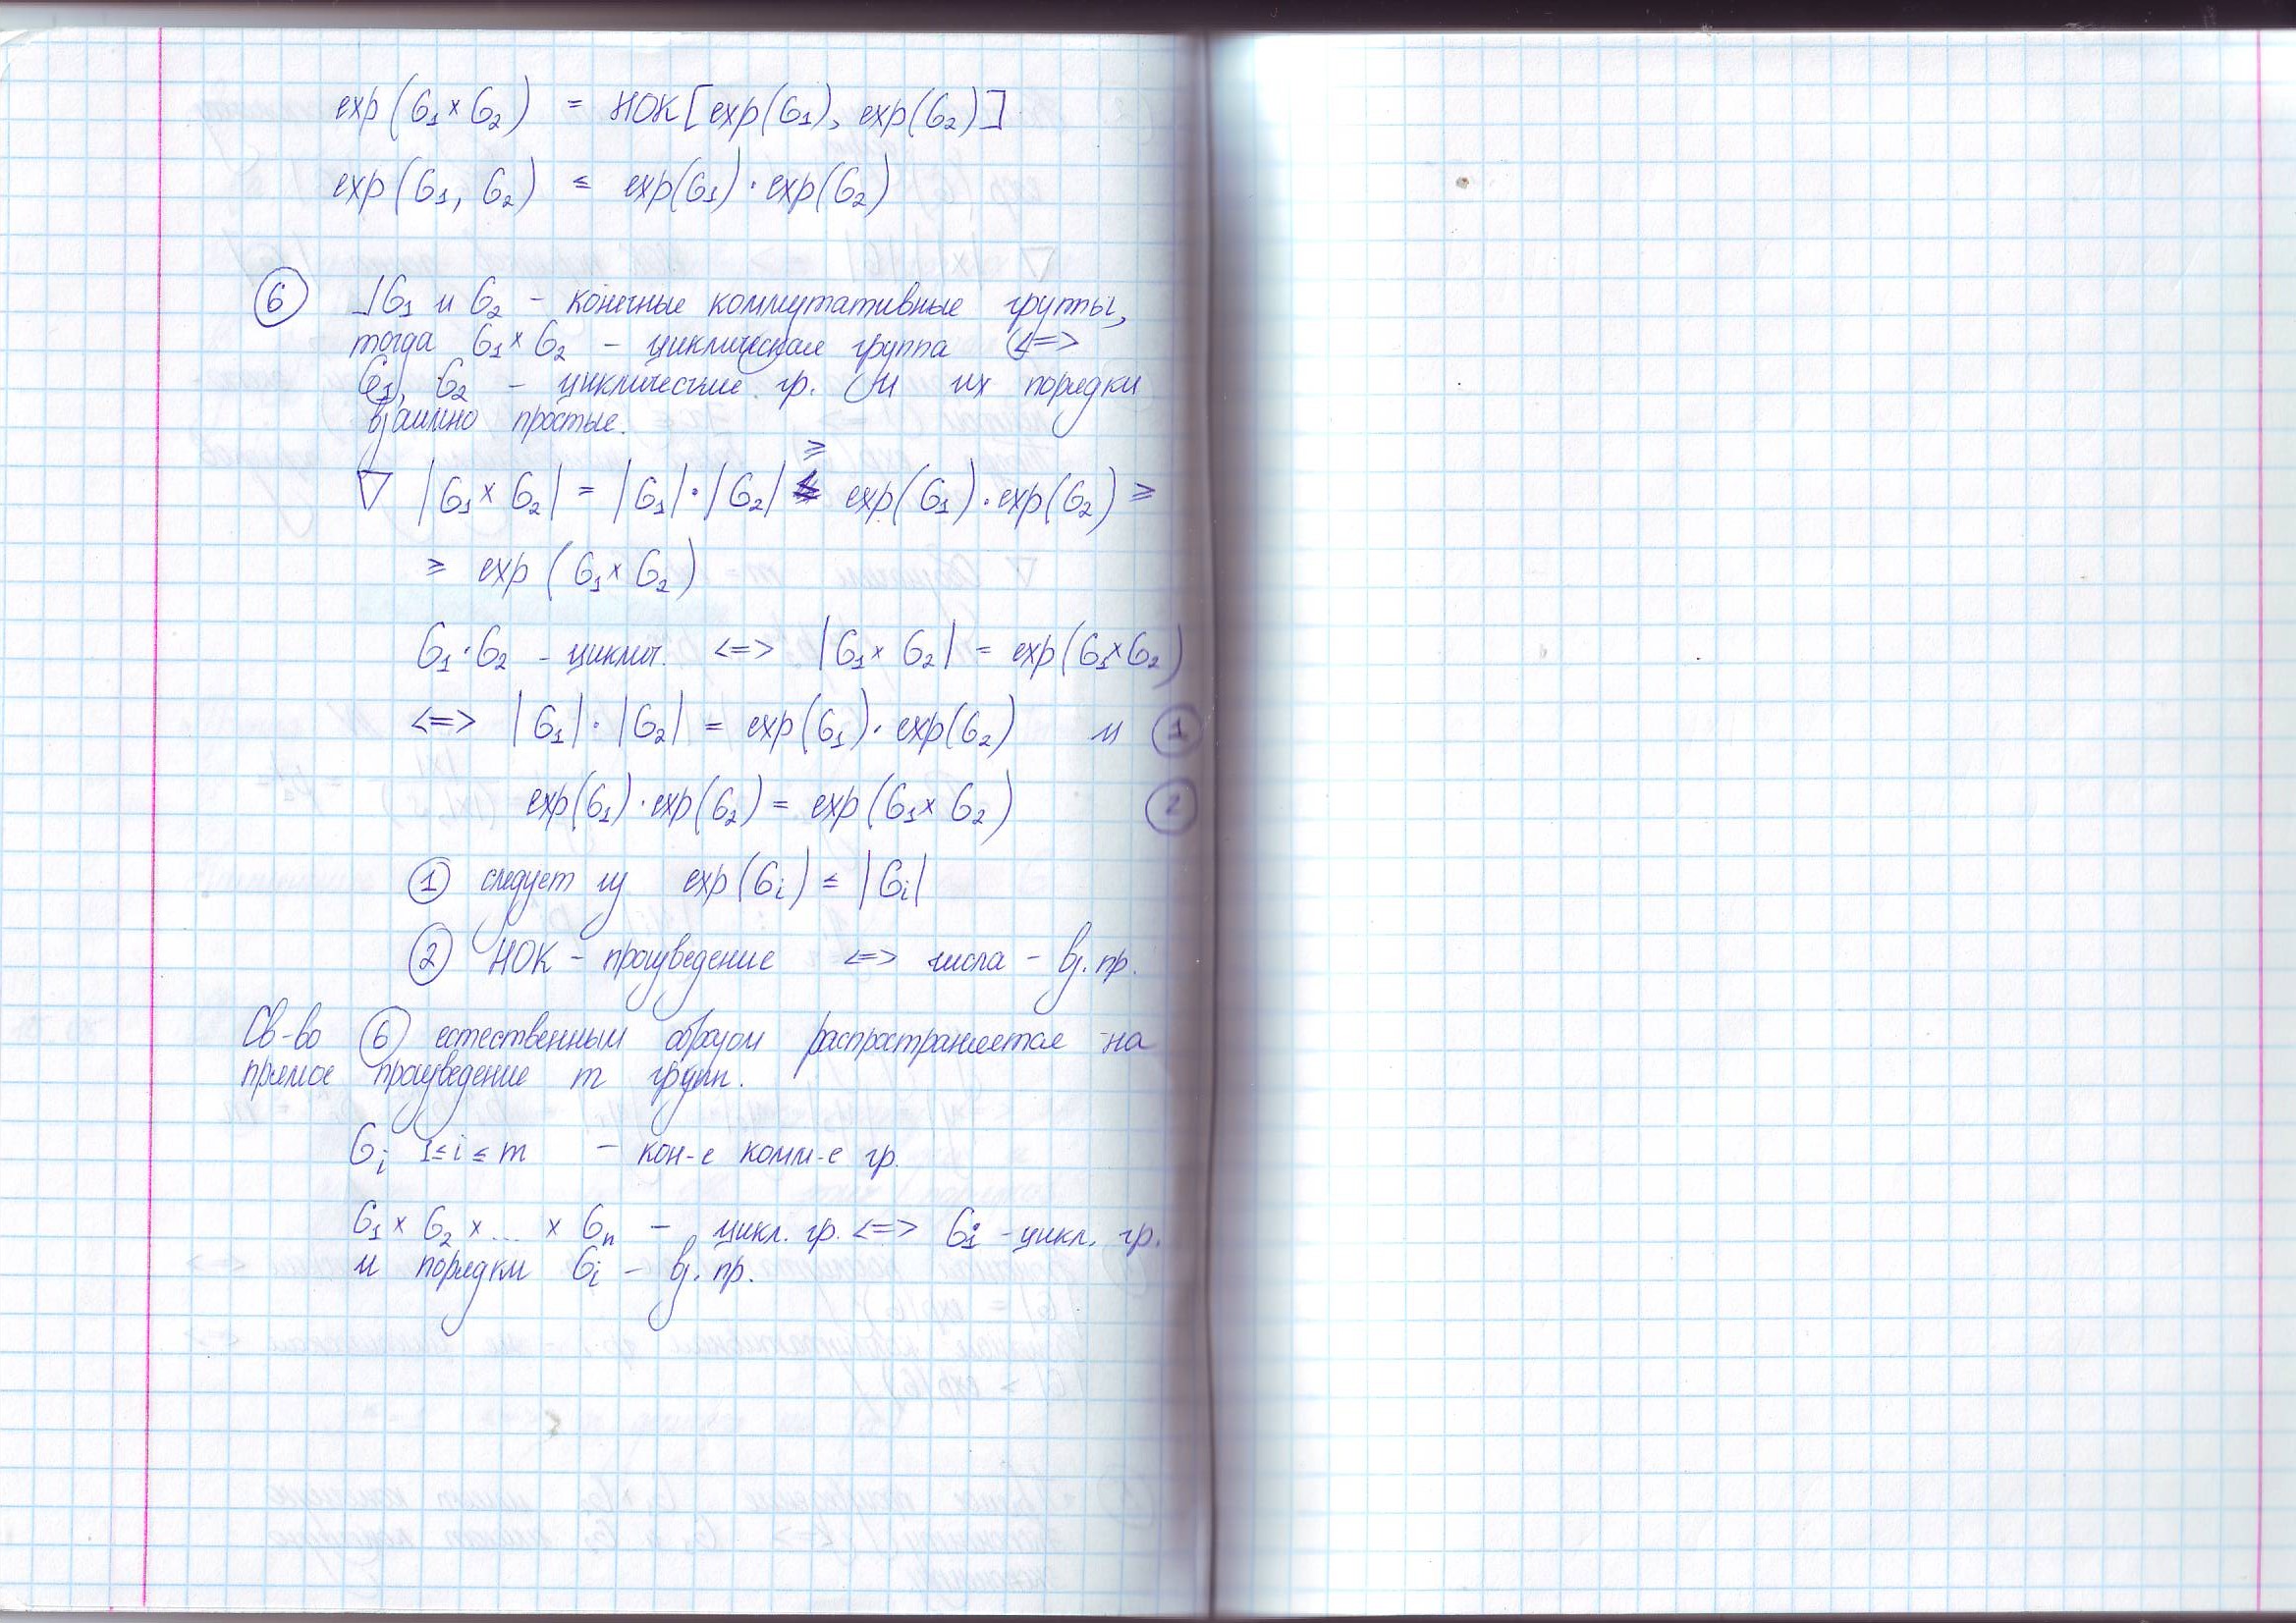 exp(G₁ × G₂) = НОК[exp(G₁), exp(G₂)]
exp(G₁, G₂) ≤ exp(G₁) · exp(G₂)
⑥ ⅃G₁ и G₂ – конечные коммутативные группы,
тогда G₁ × G₂ – циклическая группа <=>
G₁, G₂ – циклические гр. и их порядки
взаимно простые.
▽ |G₁ × G₂| = |G₁| · |G₂| ≥ exp(G₁) · exp(G₂) ≥
≥ exp(G₁ × G₂)
G₁ · G₂ – циклич. <=> |G₁ × G₂| = exp(G₁ × G₂)
<=> |G₁| · |G₂| = exp(G₁) · exp(G₂) и ①
exp(G₁) · exp(G₂) = exp(G₁ × G₂) ②
① следует из exp(Gᵢ) ≤ |Gᵢ|
② НОК – произведение <=> числа – вз. пр.
Св-во ⑥ естественным образом распространяется на
прямое произведение m групп.
Gᵢ 1 ≤ i ≤ m – кон-е комм-е гр.
G₁ × G₂ × ... × Gₙ – цикл. гр. <=> Gᵢ – цикл. гр.
и порядки Gᵢ – вз. пр.